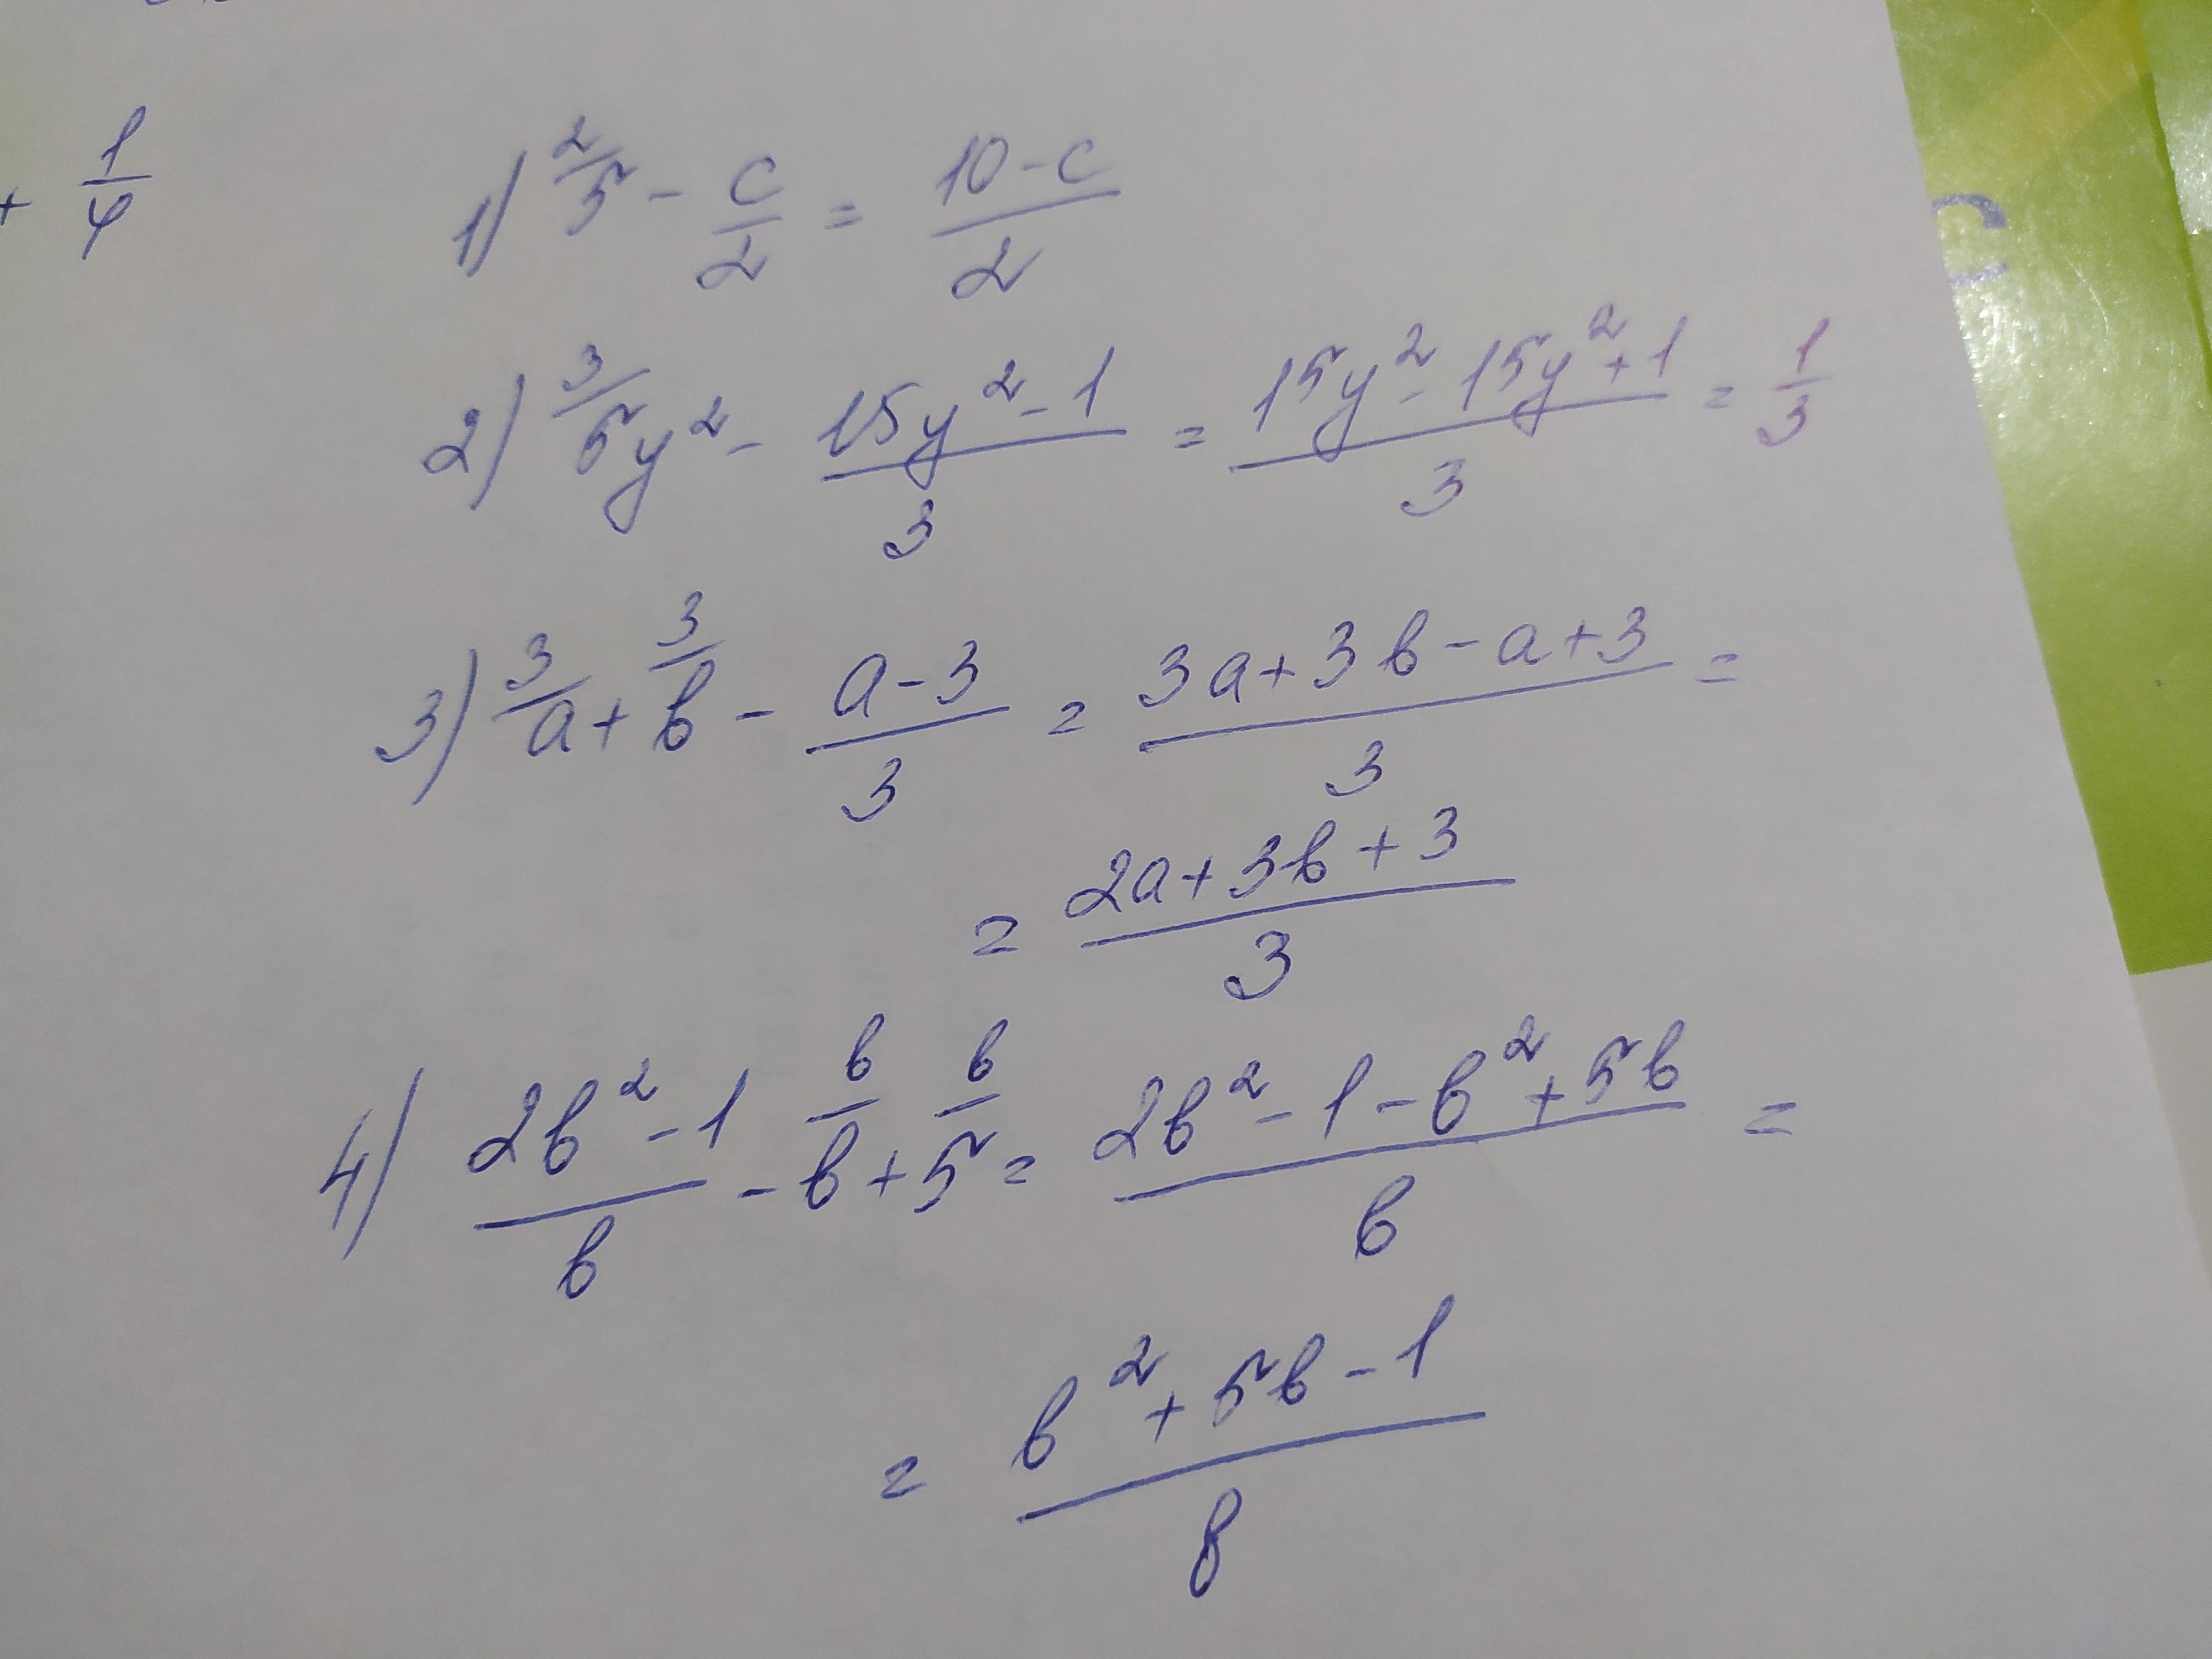 + 1/4
1) ²/5 - c/2 = (10-c)/2
2) ³/5y² - (15y²-1)/3 = (15y²-15y²+1)/3 = 1/3
3) ³/a + ³/b - (a-3)/3 = (3a+3b-a+3)/3 =
= (2a+3b+3)/3
4) (2b²-1)/b - ᵇ/b + ᵇ/5 = (2b²-1-b²+5b)/b =
= (b²+5b-1)/b